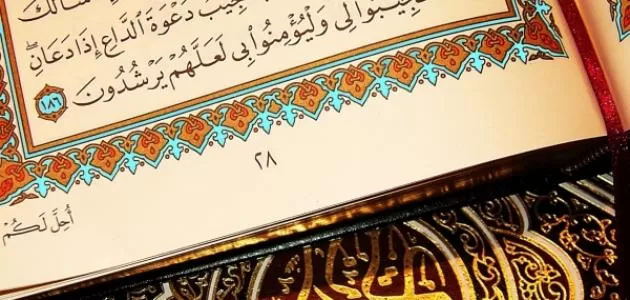 سَأَلَكَ
أُجِيبُ دَعْوَةَ الدَّاعِ إِذَا دَعَانِ ۖ
فَلْيَسْتَجِيبُوا لِي وَلْيُؤْمِنُوا بِي لَعَلَّهُمْ يَرْشُدُونَ ١٨٦
٢٨
أُحِلَّ لَكُمْ